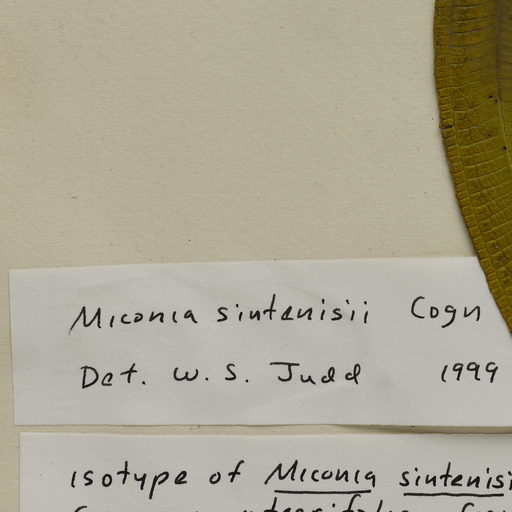 Miconia sintenisii Cogn
Det. W. S. Judd 1999
isotype of Miconia sintenisi